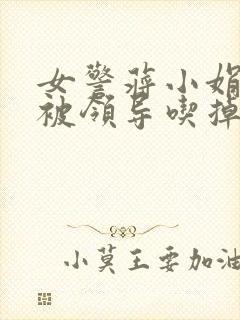 女警蒋小娟
被领导喫掉
小莫王要加油